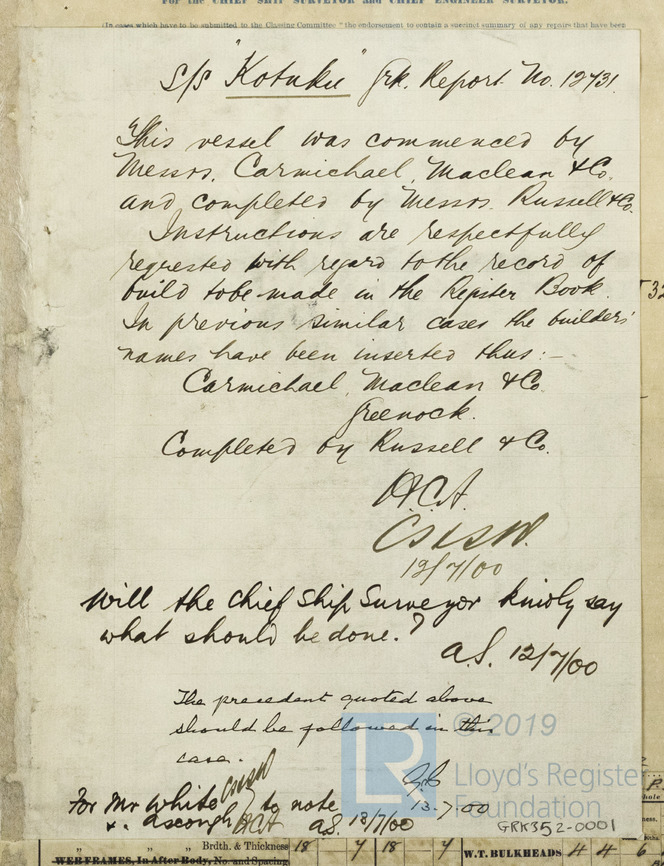 For the CHIEF SHIP SURVEYOR and CHIEF ENGINEER SURVEYOR.
(In cases which have to be submitted to the Classing Committee the endorsement to contain a succinct summary of any repairs that have been
S/S "Kotuku" Grk. Report. No. 12731.
This vessel was commenced by
Messrs. Carmichael, Maclean & Co.
and completed by Messrs. Russell & Co.
Instructions are respectfully
requested with regard to the record of
build to be made in the Register Book.
In previous similar cases the builders'
names have been inserted thus:-
Carmichael, Maclean & Co.
Greenock.
Completed by Russell & Co.
H.C.A.
12/7/00
Will the Chief Ship Surveyor kindly say
what should be done.?
A.S. 12/7/00
The precedent quoted above
should be followed in this
case.
13.7.00
For Mr White
& Ascough to note
A.S. 13/7/00
© 2019
LR
Lloyd's Register
Foundation
GRK352-0001
" " " Brdth. & Thickness 18 7 18 7
WEB FRAMES, In After Body, No. and Spacing
W.T. BULKHEADS 4 4 6